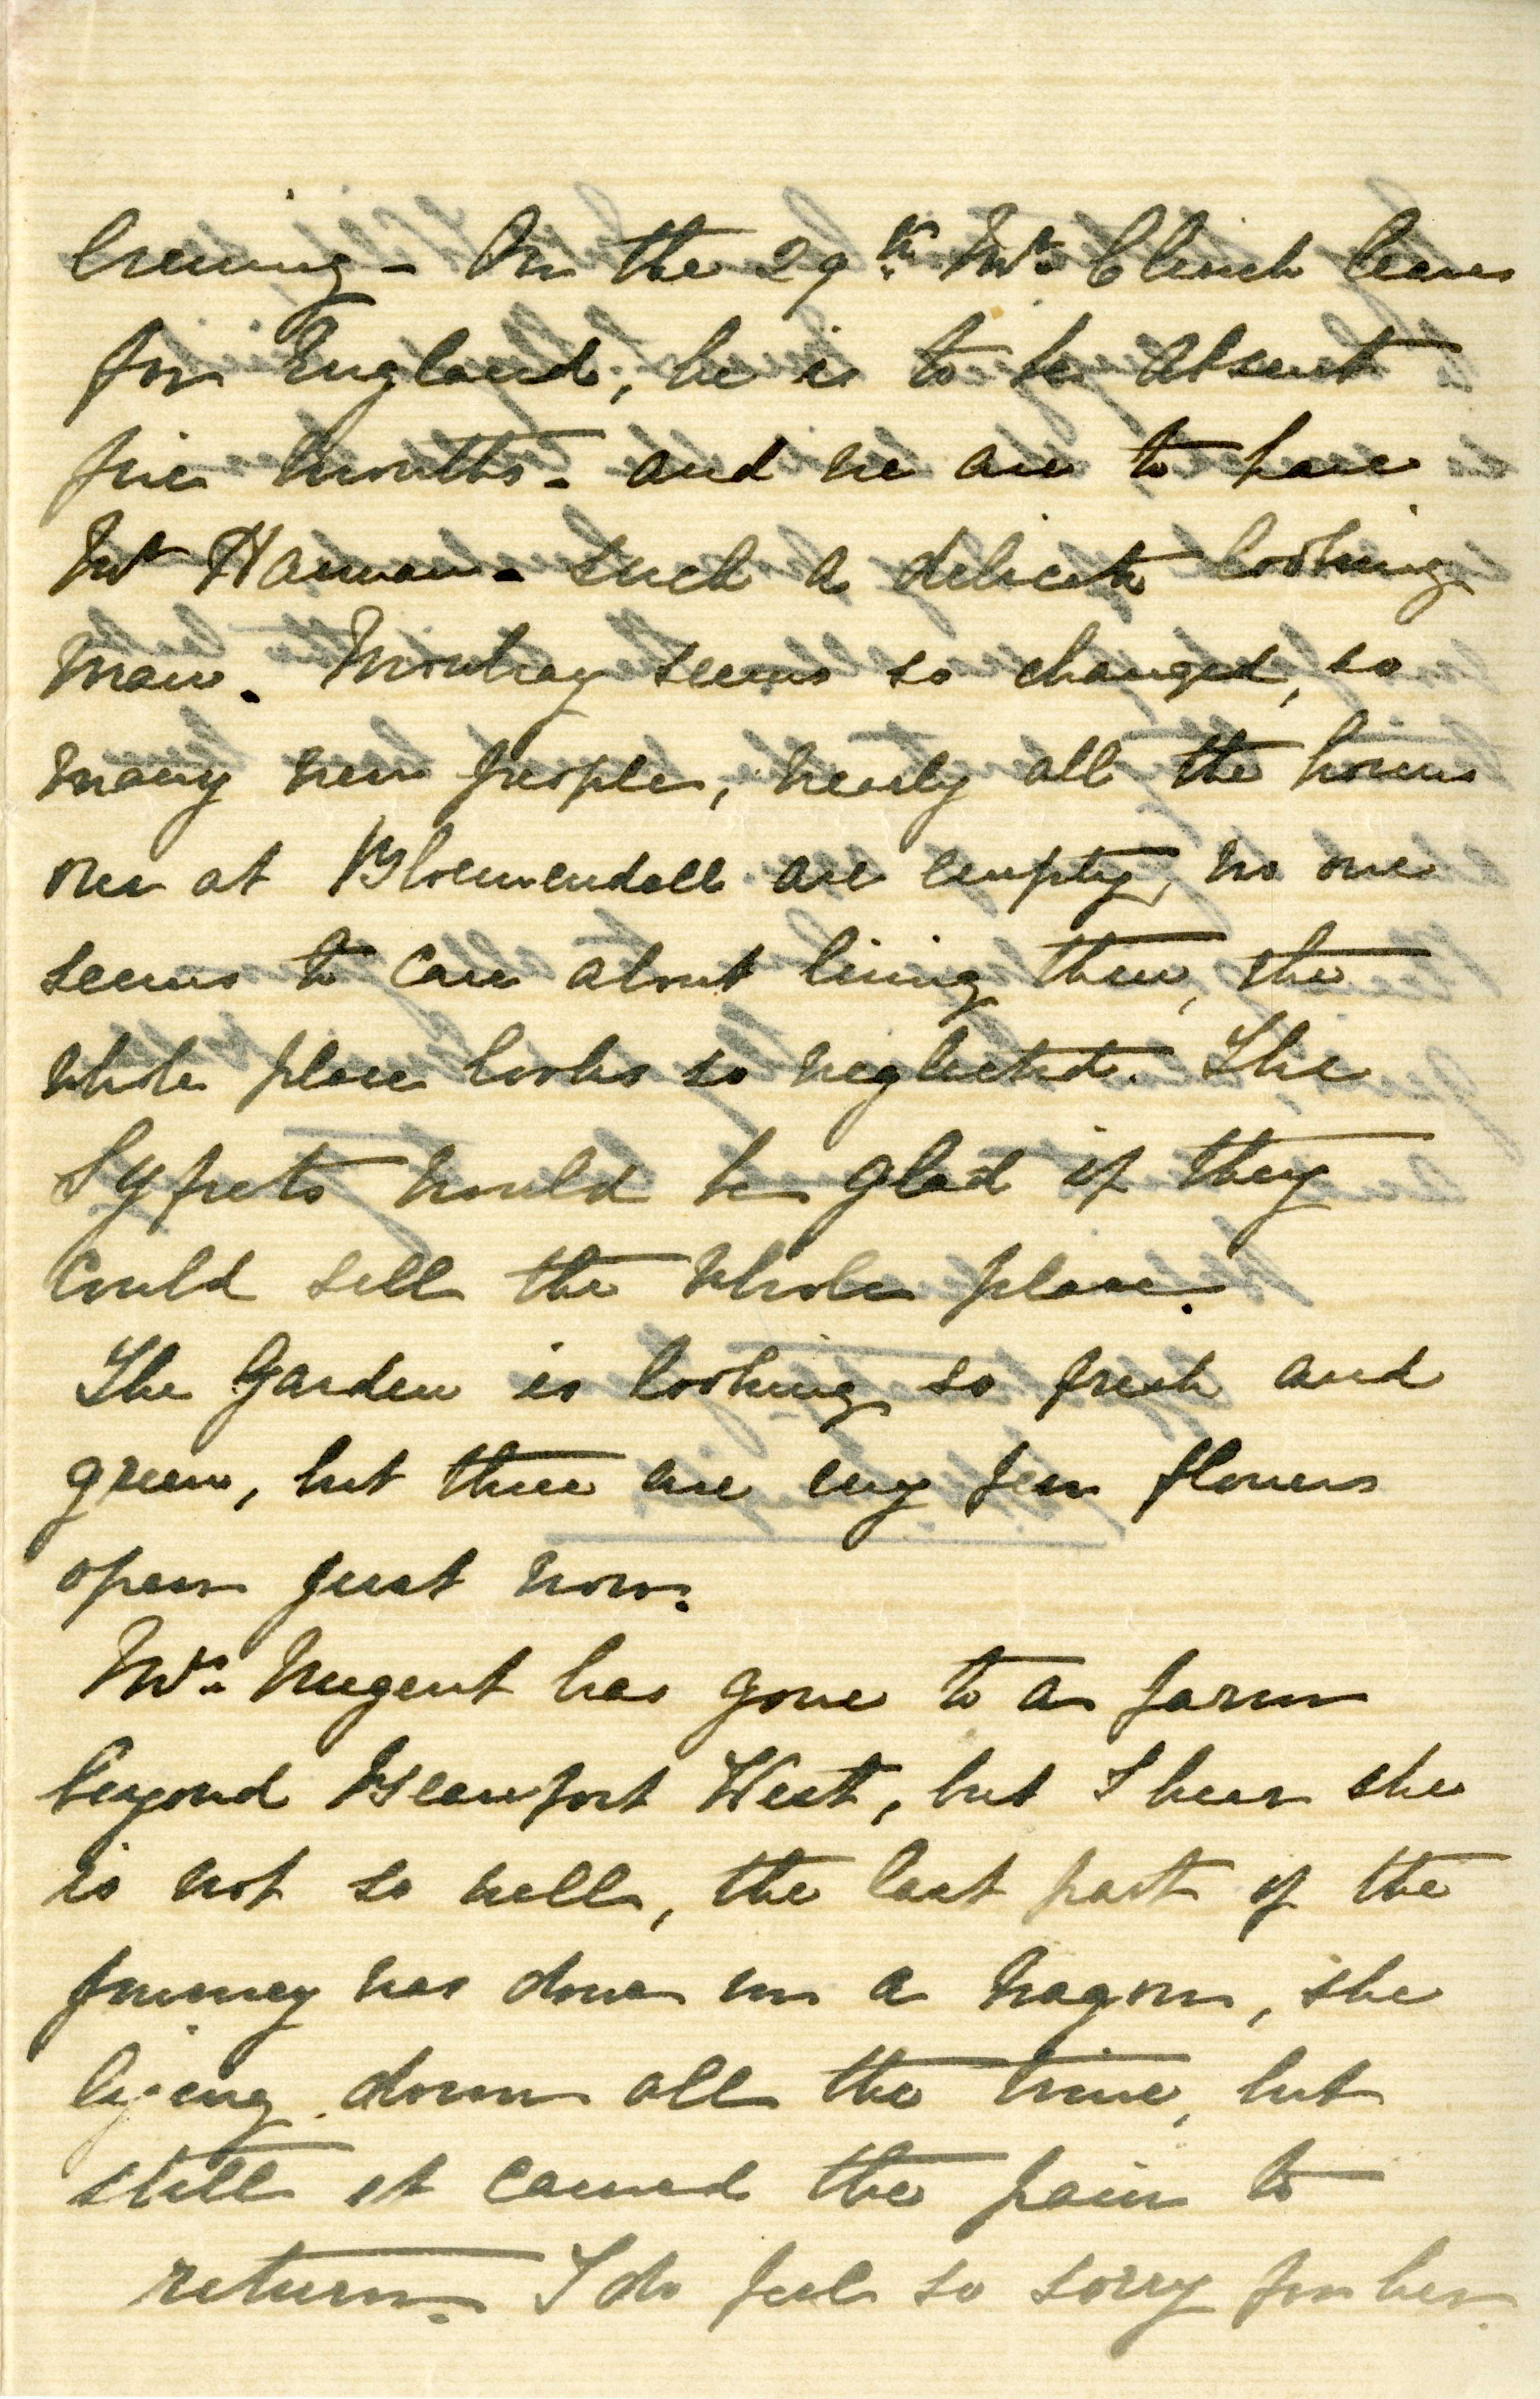 Evening - On the 29th Mr. Clinch leaves
for England, he is to be absent
five months - and we are to have
Mr Haman - such a delicate looking
man. Mowbray seems so changed, so
many new people, nearly all the houses
over at Bloemendall are empty, no one
seems to care about living there, the
whole place looks so neglected. The
Syfrets would be glad if they
could sell the whole place.
The Garden is looking so fresh and
green, but there are very few flowers
open just now.
Mrs. Nugent has gone to a farm
beyond Beaufort West, but I hear she
is not so well, the last part of the
journey was done in a wagon, she
lying down all the time, but
still it caused the pain to
return. I do feel so sorry for her.